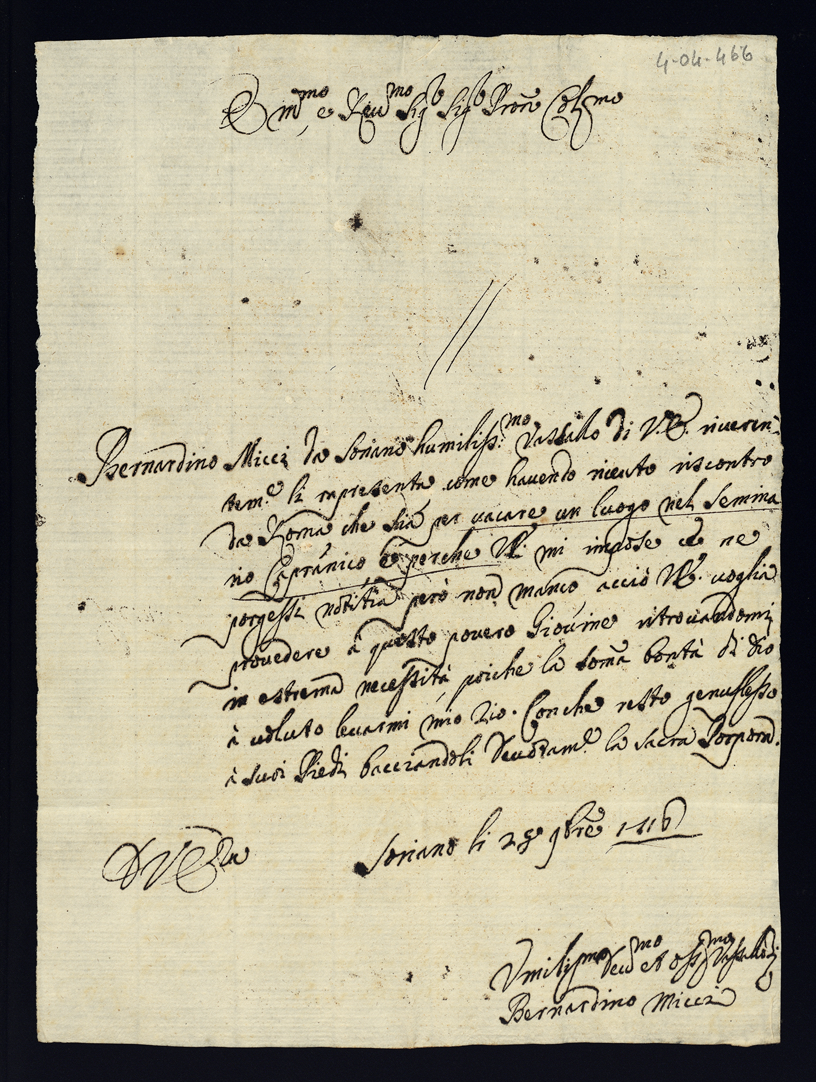 4-04-466
Em.mo e Rev.mo Sig.e Sig.e Pron̄e Col.mo
Bernardino Micci da Soriano humiliss.mo Vassallo di V.E. riveren
tem.e li rapresenta come havendo riceuto riscontro
da Roma che stia per vacare un luogo nel Semina
rio Capranico e perche V.E. mi impose che ne
porgessi notitia però non manco acciò V.E. voglia
provedere a questo povero Giovine ritrovandomi
in estrema necessità, poiche la som̄a bontà di Dio
à voluto levarmi mio Zio. Con che resto genuflesso
à suoi Piedi bacciandoli Devotam.e la sacra Porpora.
Soriano li 28 9bre 1716
D V E.za
Umiliss.mo Dev.mo et oss.mo Vassallo di
Bernardino Micci